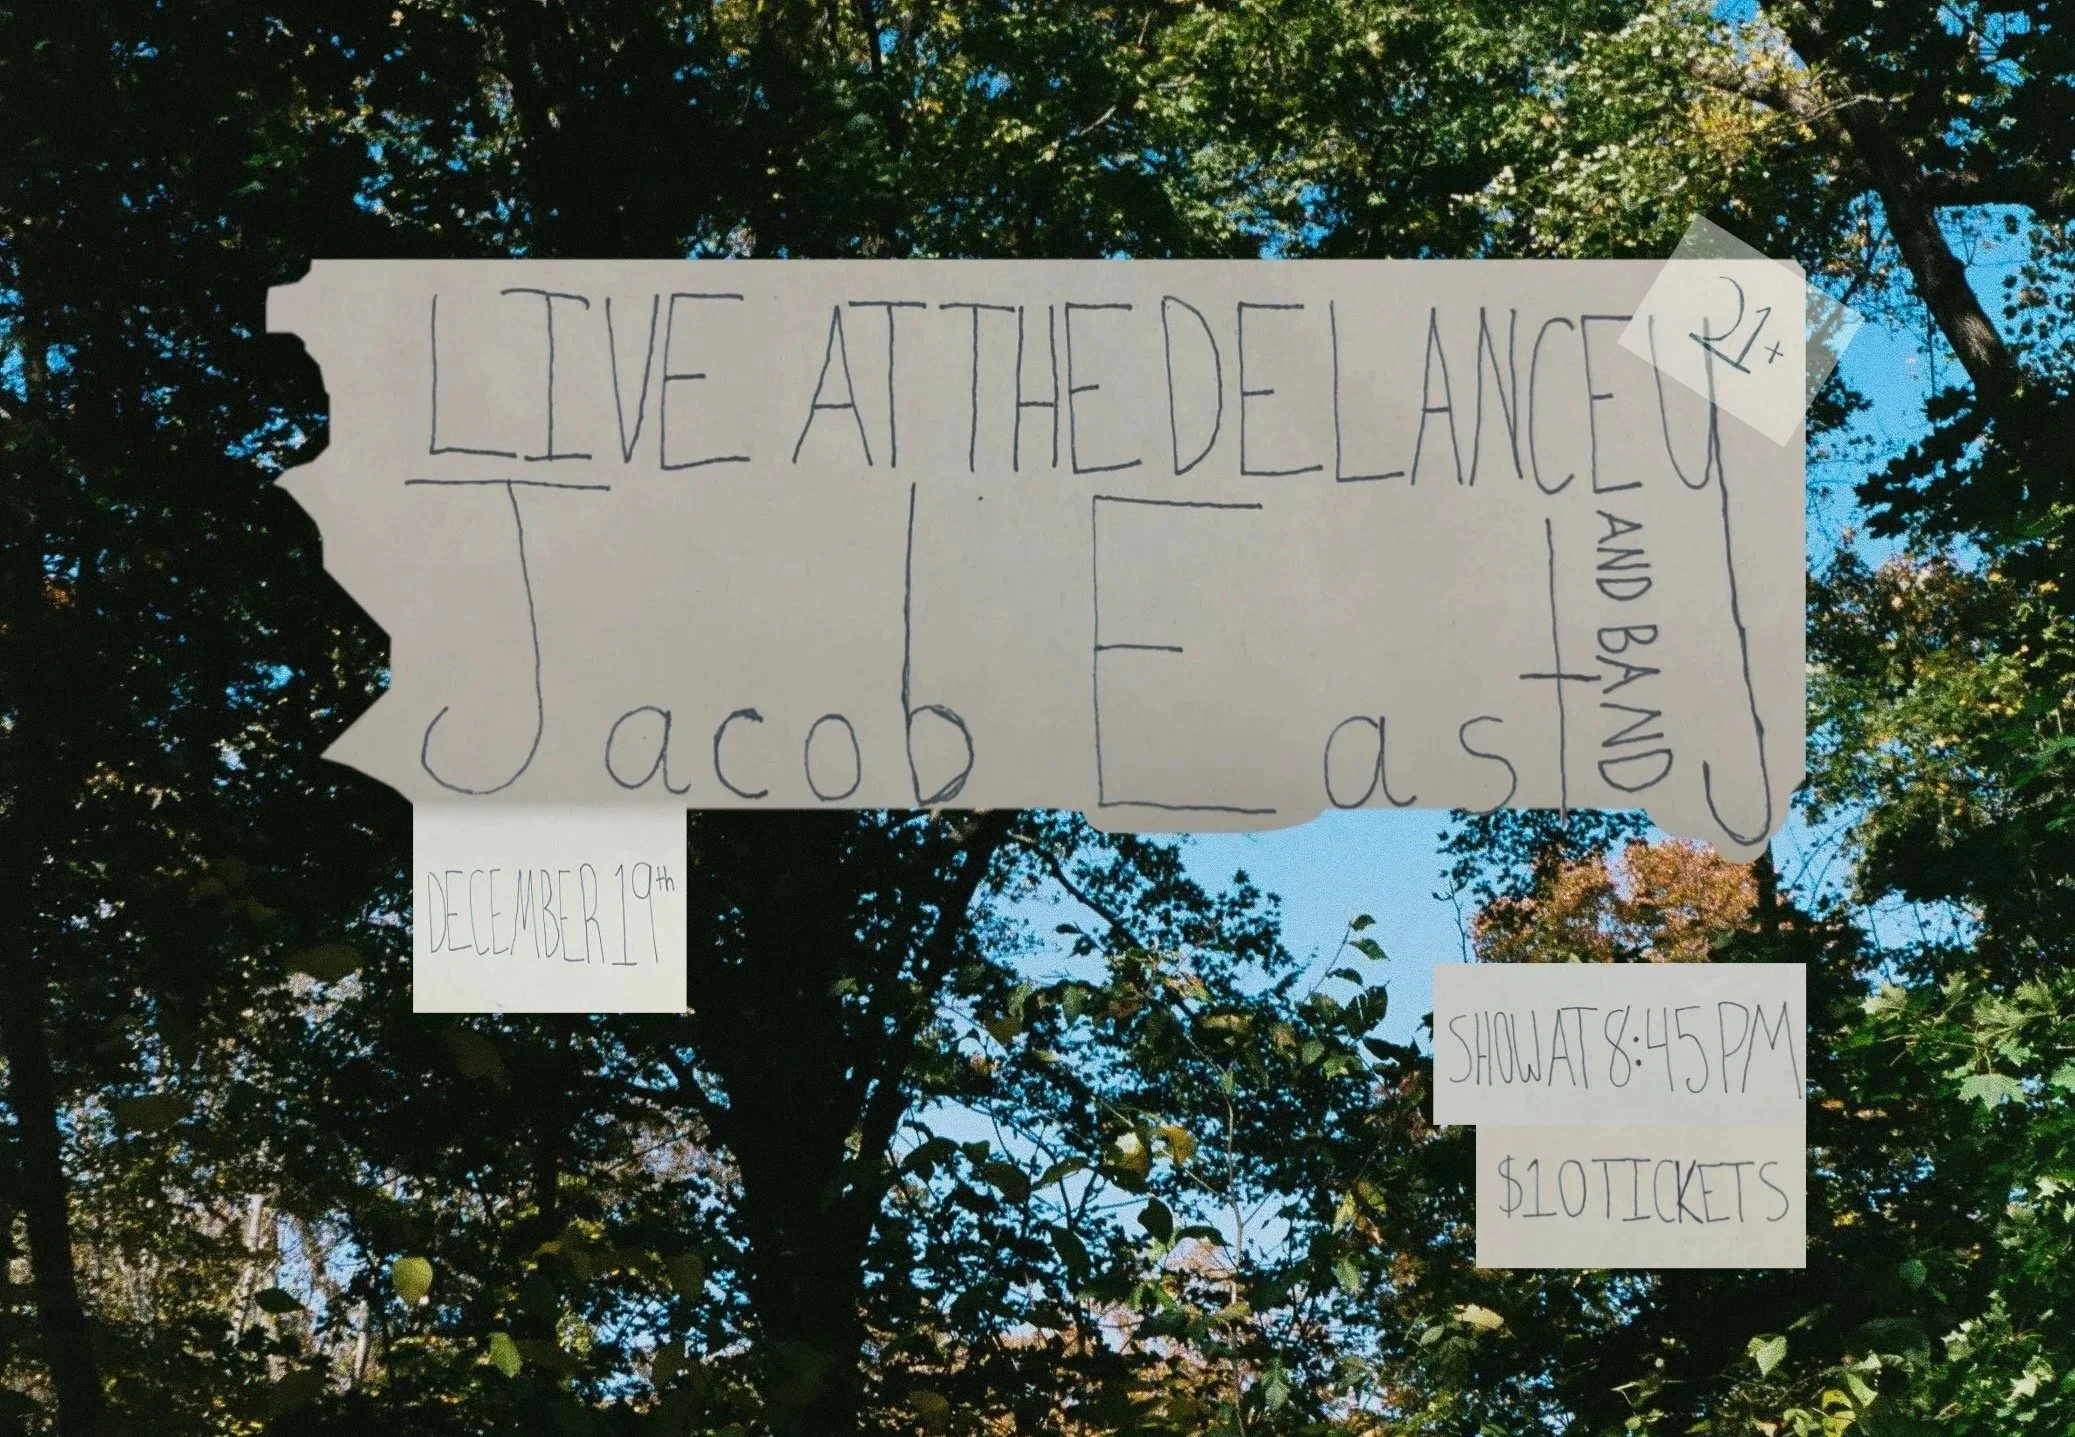 LIVE AT THE DELANCEY
21+
Jacob East
AND BAND
DECEMBER 19th
SHOW AT 8:45PM
$10 TICKETS